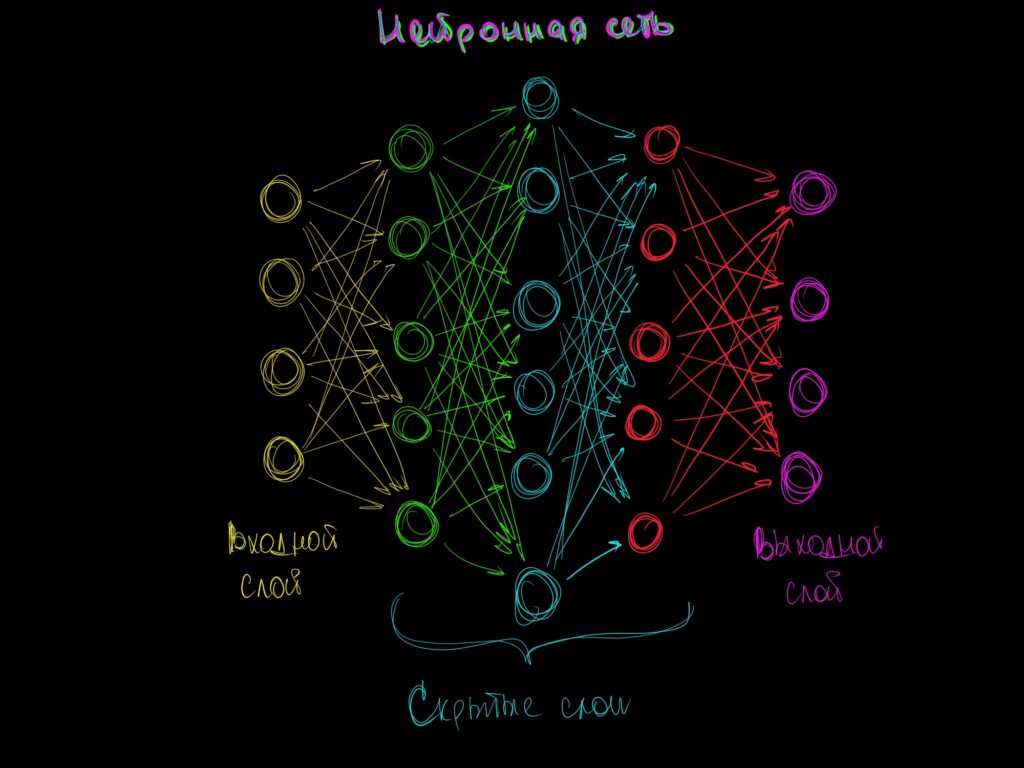 Нейронная сеть
Входной
слой
Выходной
слой
Скрытые слои